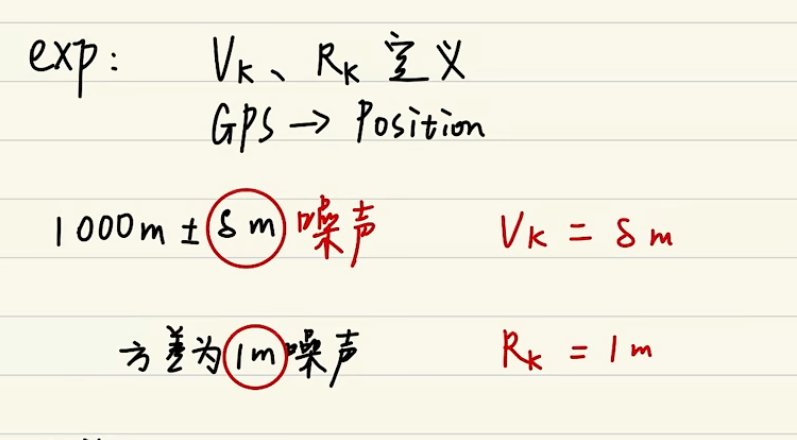 exp: VK、RK 定义
GPS → Position
1000m ± δm 噪声 VK = δm
方差为1m噪声 RK = 1m